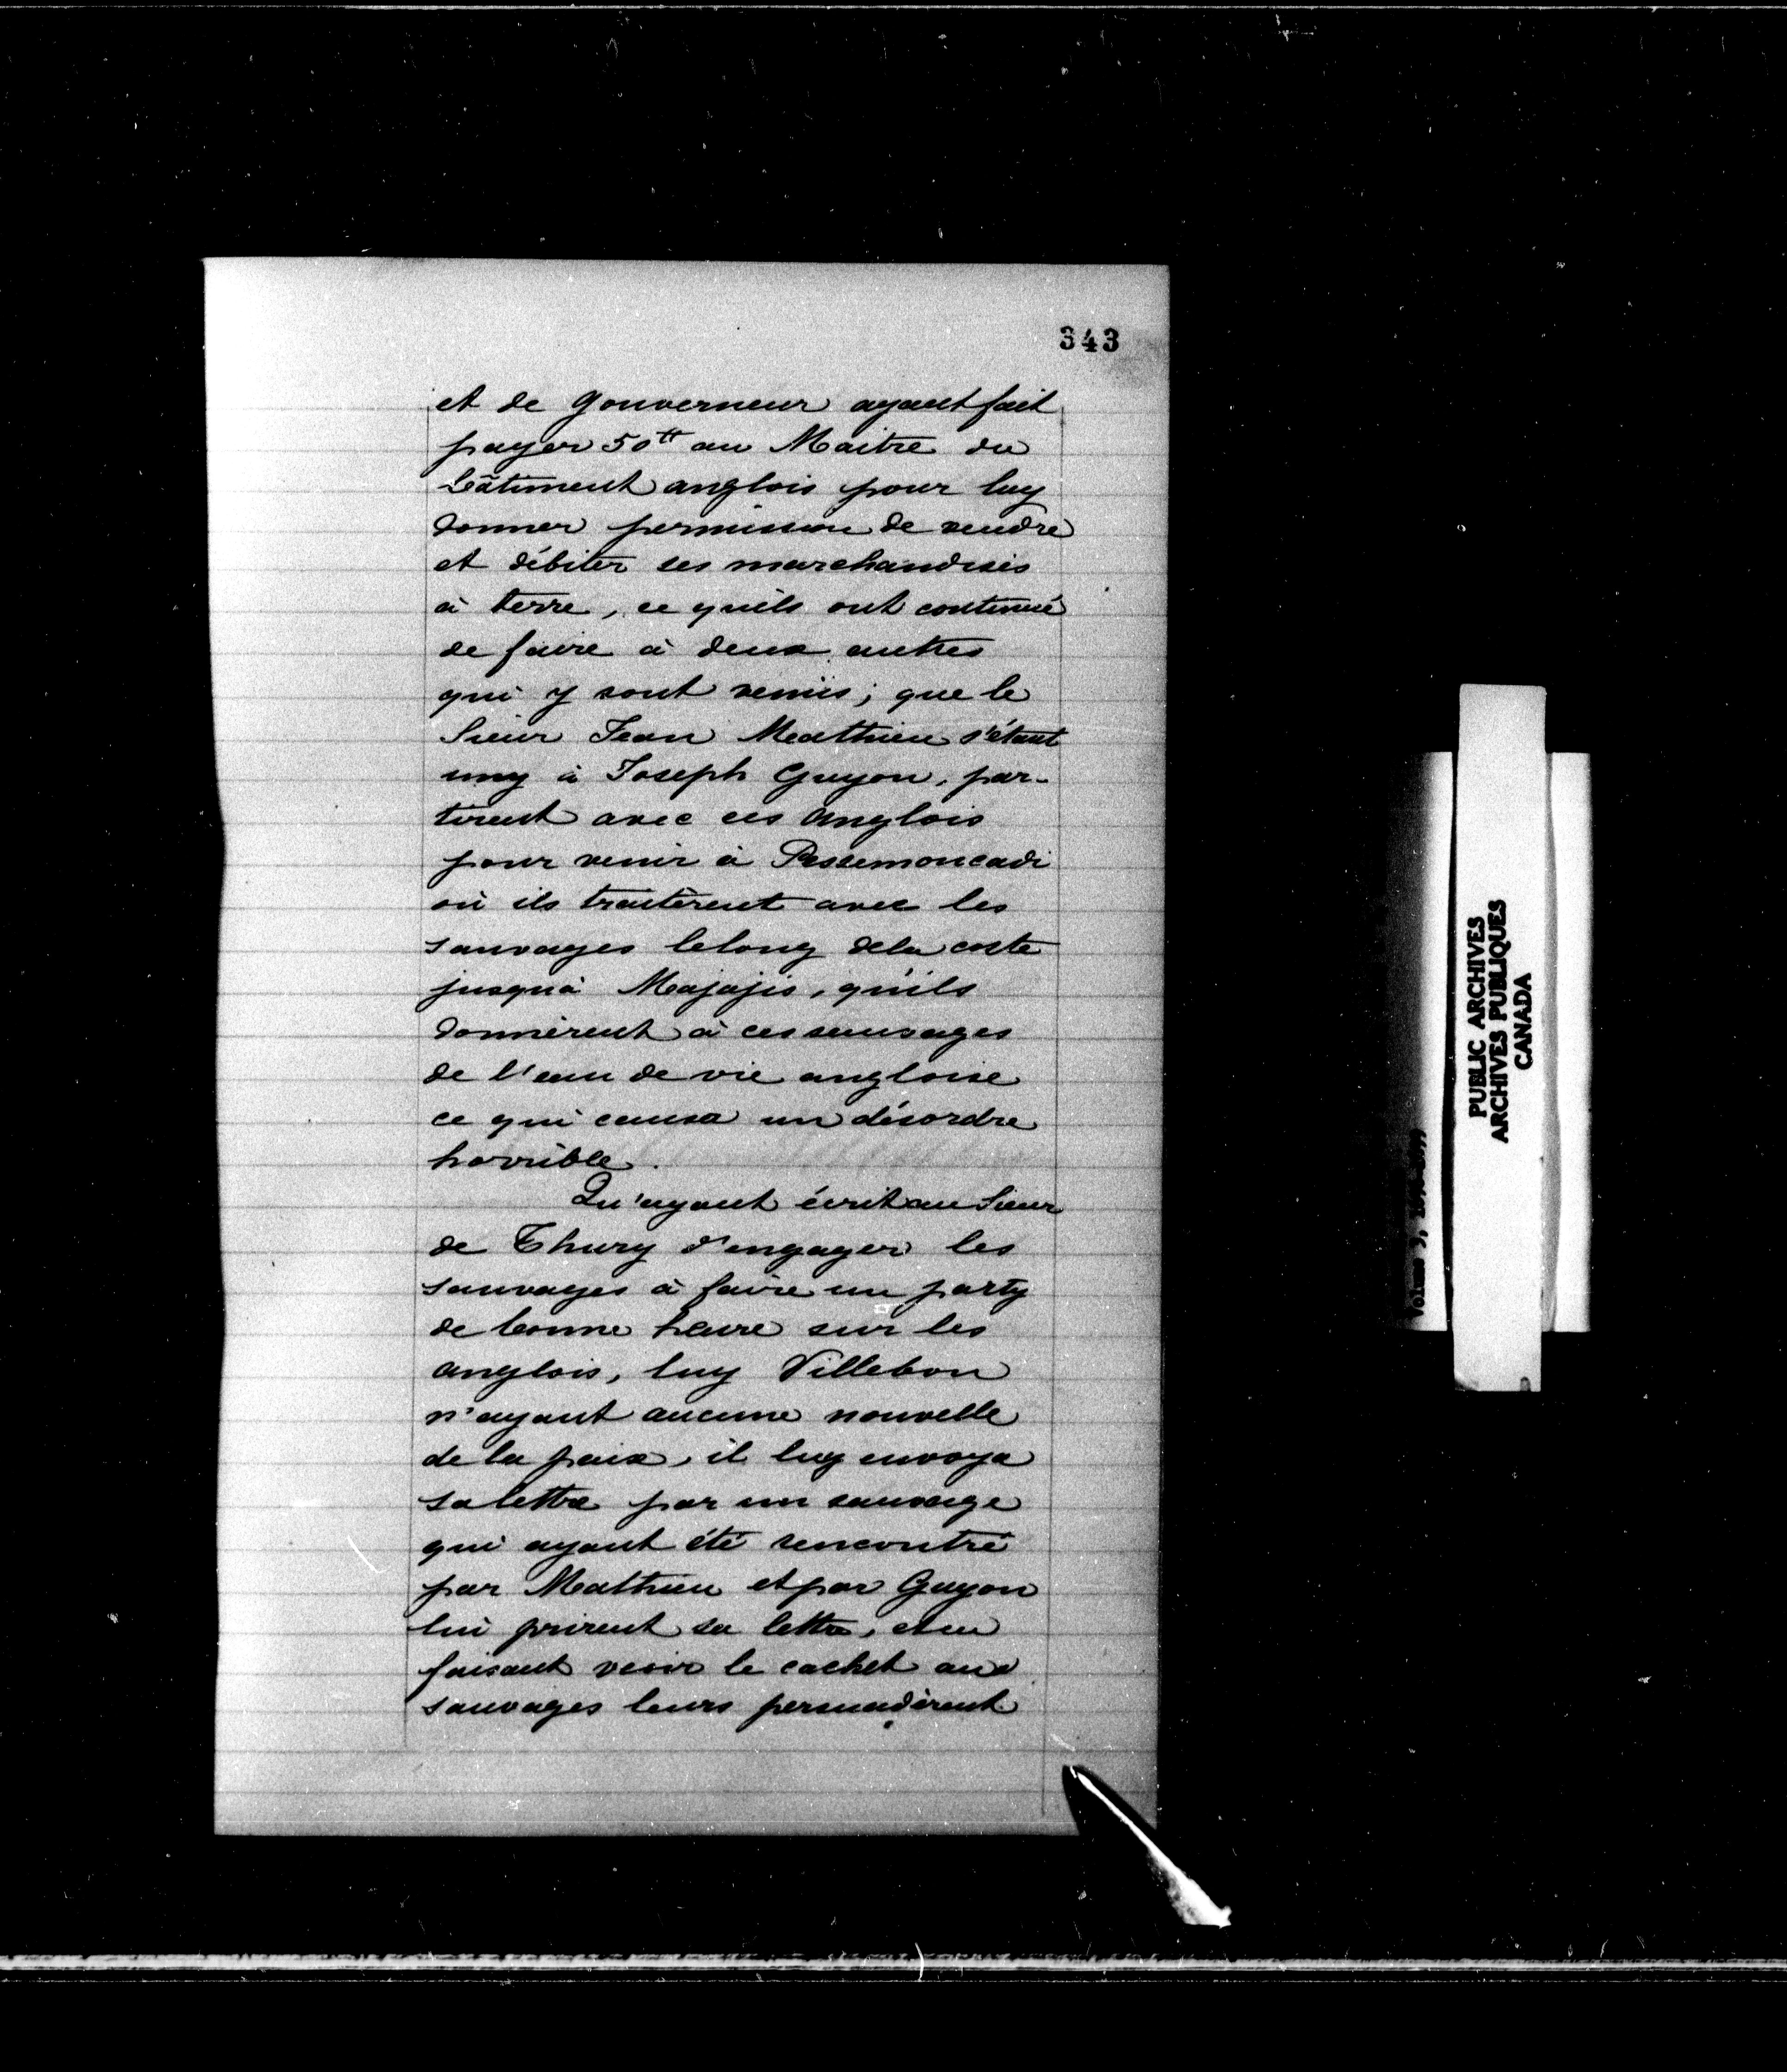 343
et de Gouverneur ayant fait
payer 50tt au Maitre du
bâtiment anglois pour luy
donner permission de vendre
et débiter ses marchandises
à terre, ce quils ont continué
de faire à deux autres
qui y sont venus; que le
Sieur Jean Mathieu s'étant
uny à Joseph Guyon, par-
tirent avec ces anglois
pour venir à Pessemoucadi
où ils traitèrent avec les
sauvages lelong dela coste
jusqu'à Majajis, qu'ils
donnèrent à ces sauvages
de l'eau de vie angloise
ce qui causa un désordre
horrible.
Qu'ayant écrit au Sieur
de Thury d'engager les
sauvages à faire un party
de bonne heure sur les
anglois, luy Villebon
n'ayant aucune nouvelle
de la paix, il luy envoya
sa lettre par un sauvage
qui ayant été rencontré
par Mathieu et par Guyon
lui prirent sa lettre, et en
faisant veoir le cachet aux
sauvages leurs persuadèrent
PUBLIC ARCHIVES
ARCHIVES PUBLIQUES
CANADA
Volume 3,